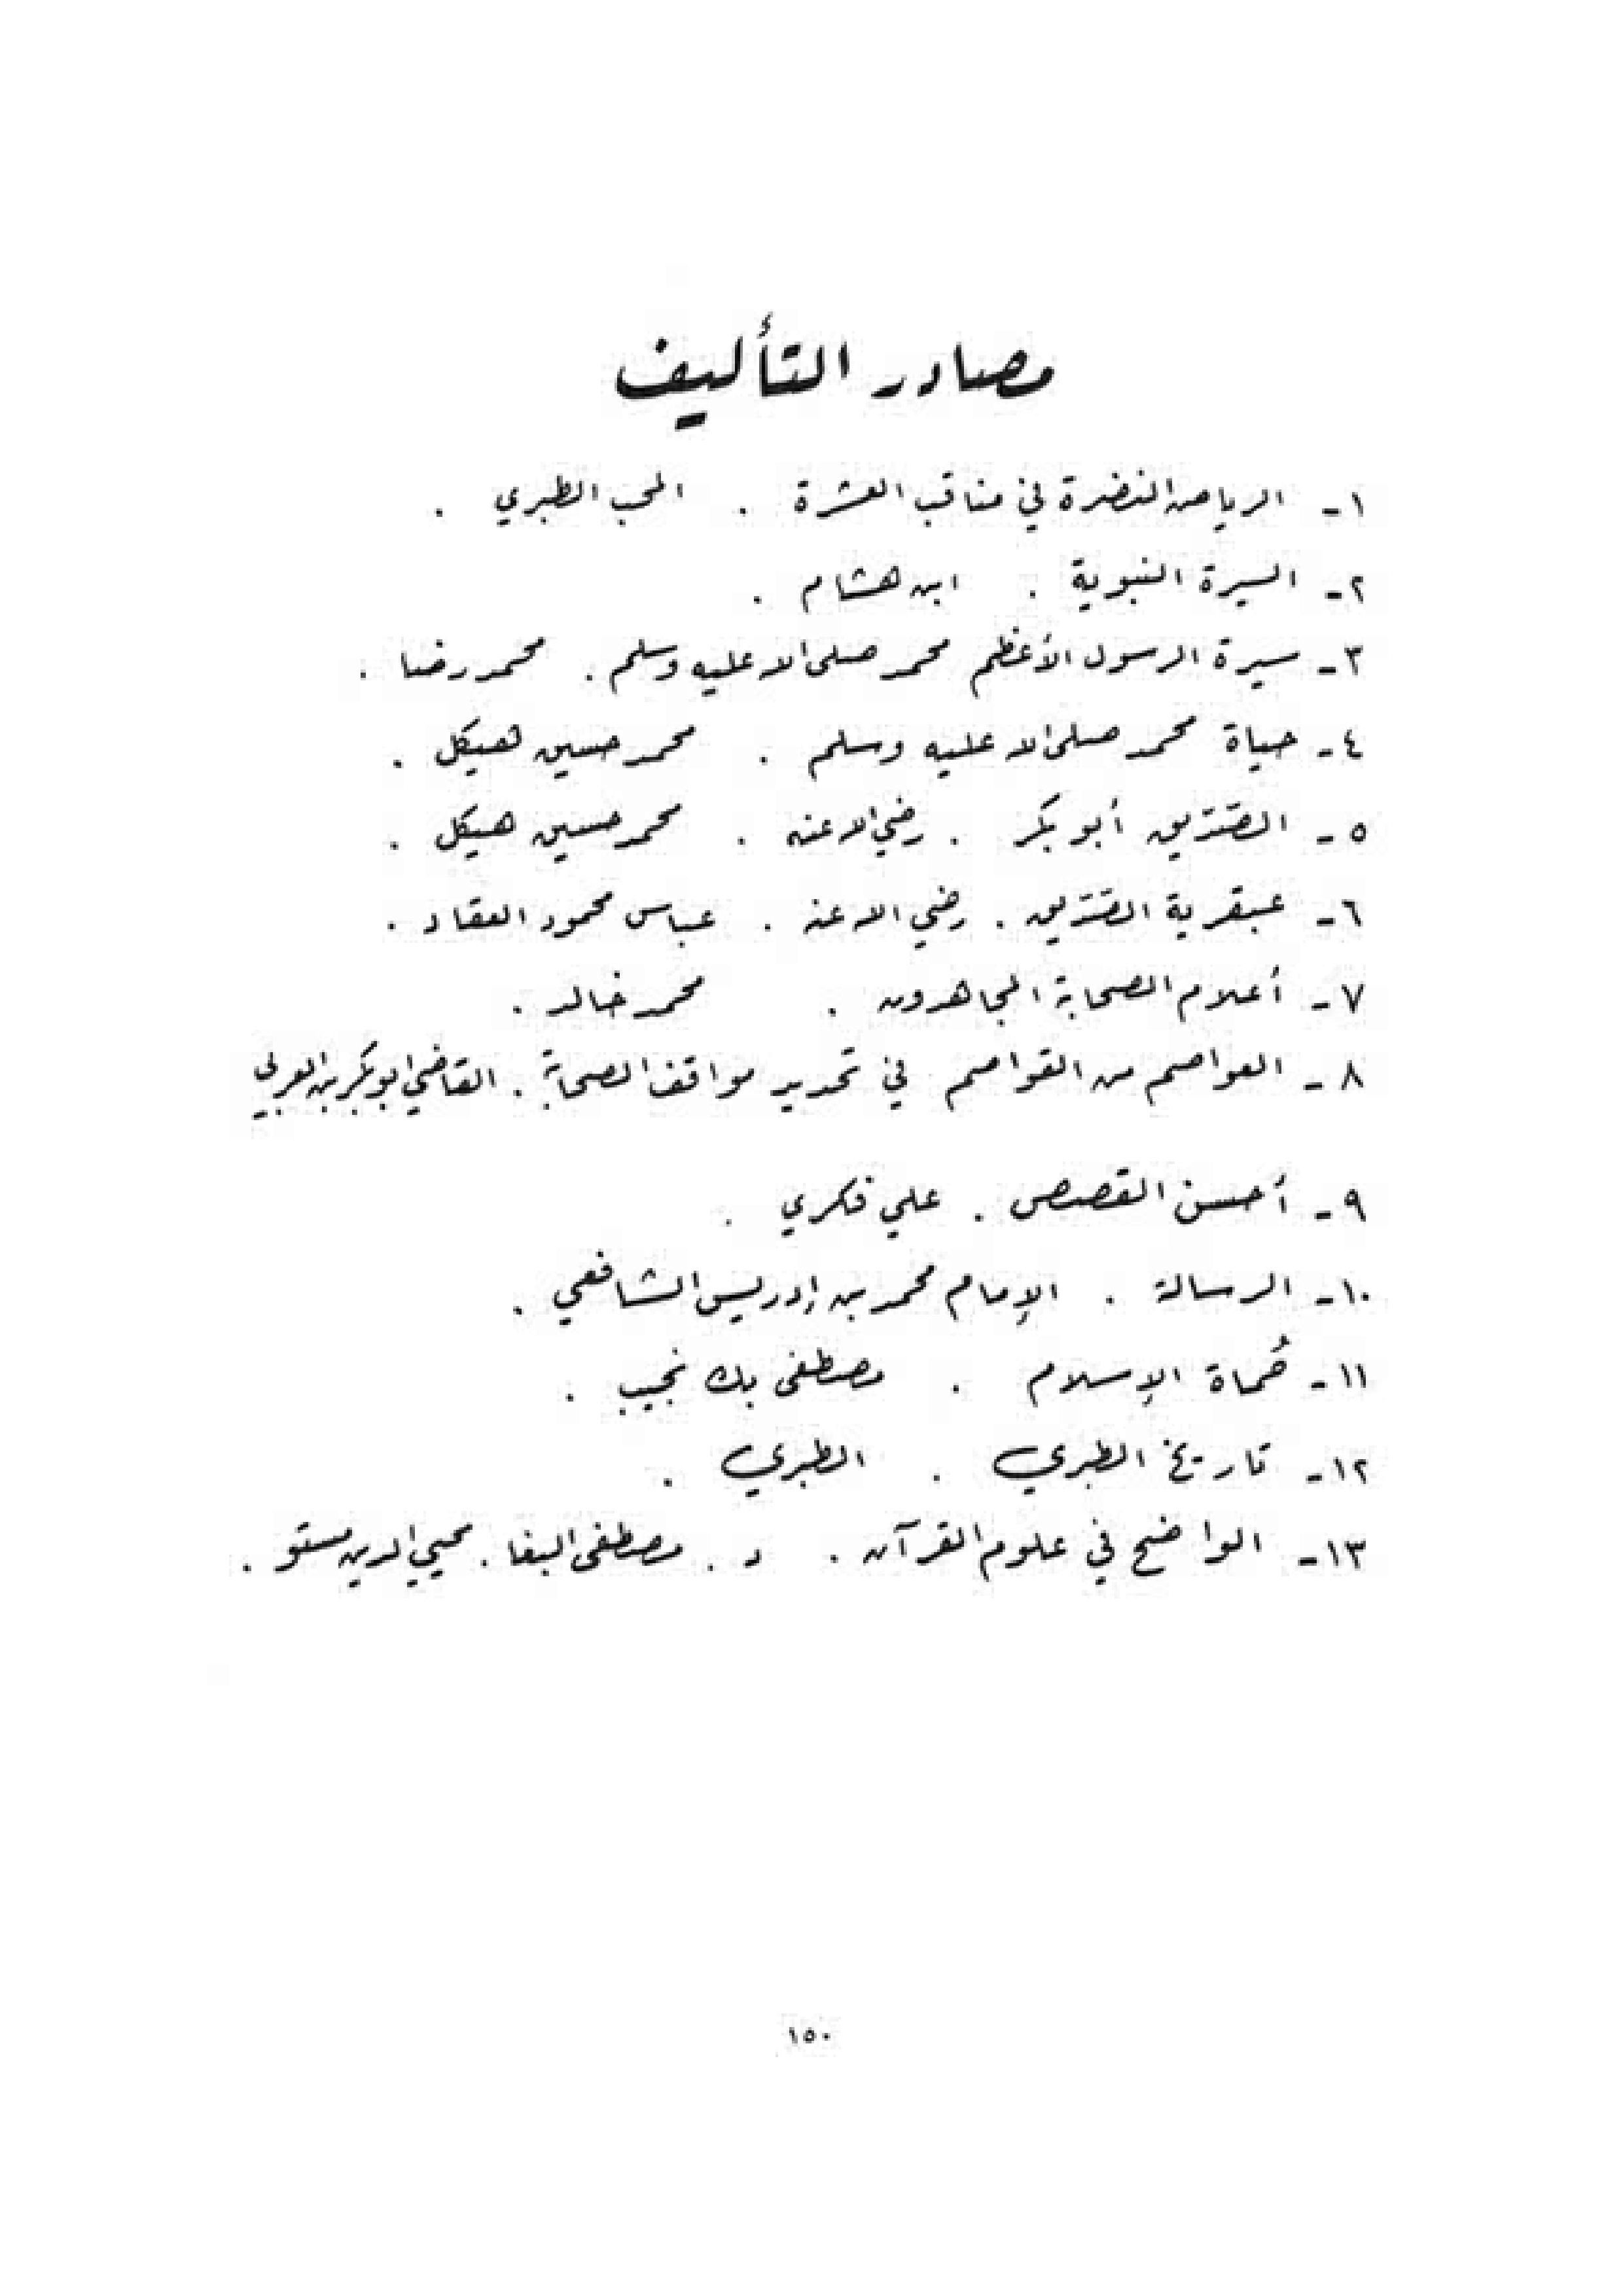 مصادر التأليف
١ - الرياض النضرة في مناقب العشرة . المحب الطبري .
٢ - السيرة النبوية . ابن هشام .
٣ - سيرة الرسول الأعظم محمد صلى الله عليه وسلم . محمد رضا .
٤ - حياة محمد صلى الله عليه وسلم . محمد حسين هيكل .
٥ - الصّدّيق أبو بكر . رضي الله عنه . محمد حسين هيكل .
٦ - عبقرية الصّدّيق . رضي الله عنه . عباس محمود العقاد .
٧ - أعلام الصحابة المجاهدون . محمد خالد .
٨ - العواصم من القواصم في تحديد مواقف الصحابة . القاضي ابو بكر بن العربي
٩ - أحسن القصص . علي فكري .
١٠ - الرسالة . الإمام محمد بن إدريس الشافعي .
١١ - حُماة الإسلام . مصطفى بك نجيب .
١٢ - تاريخ الطبري . الطبري .
١٣ - الواضح في علوم القرآن . د . مصطفى البغا . محيي الدين مستو .
١٥٠